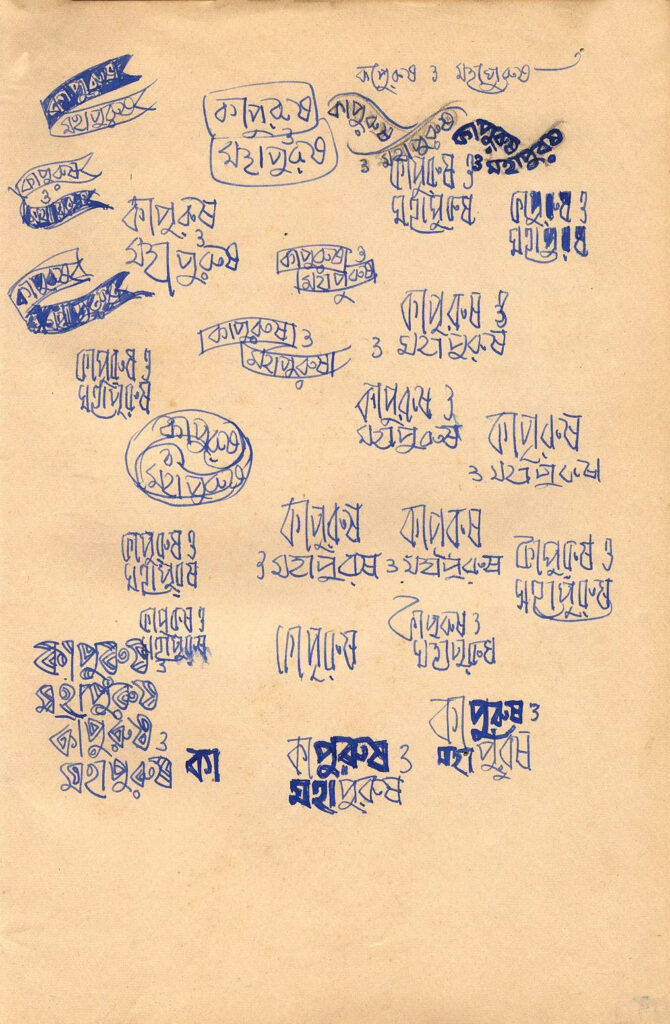 কাপুরুষ ও মহাপুরুষ
কাপুরুষ
মহাপুরুষ
কাপুরুষ
ও
মহাপুরুষ
কাপুরুষ
ও মহাপুরুষ
কাপুরুষ
ও মহাপুরুষ
কাপুরুষ
ও
মহাপুরুষ
কাপুরুষ ও
মহাপুরুষ
কাপুরুষ ও
মহাপুরুষ
কাপুরুষ
ও
মহাপুরুষ
কাপুরুষ ও
মহাপুরুষ
কাপুরুষ
ও মহাপুরুষ
কাপুরুষ ও
মহাপুরুষ
কাপুরুষ ও
ও মহাপুরুষ
কাপুরুষ ও
মহাপুরুষ
কাপুরুষ ও
মহাপুরুষ
কাপুরুষ
ও মহাপুরুষ
কাপুরুষ
ও
মহাপুরুষ
কাপুরুষ ও
মহাপুরুষ
কাপুরুষ
ও মহাপুরুষ
কাপুরুষ
ও মহাপুরুষ
কাপুরুষ ও
মহাপুরুষ
কাপুরুষ ও
মহাপুরুষ
কাপুরুষ
কাপুরুষ ও
মহাপুরুষ
কাপুরুষ ও
মহাপুরুষ
কাপুরুষ ও
মহাপুরুষ
কা
কাপুরুষ ও
মহাপুরুষ
কাপুরুষ ও
মহাপুরুষ